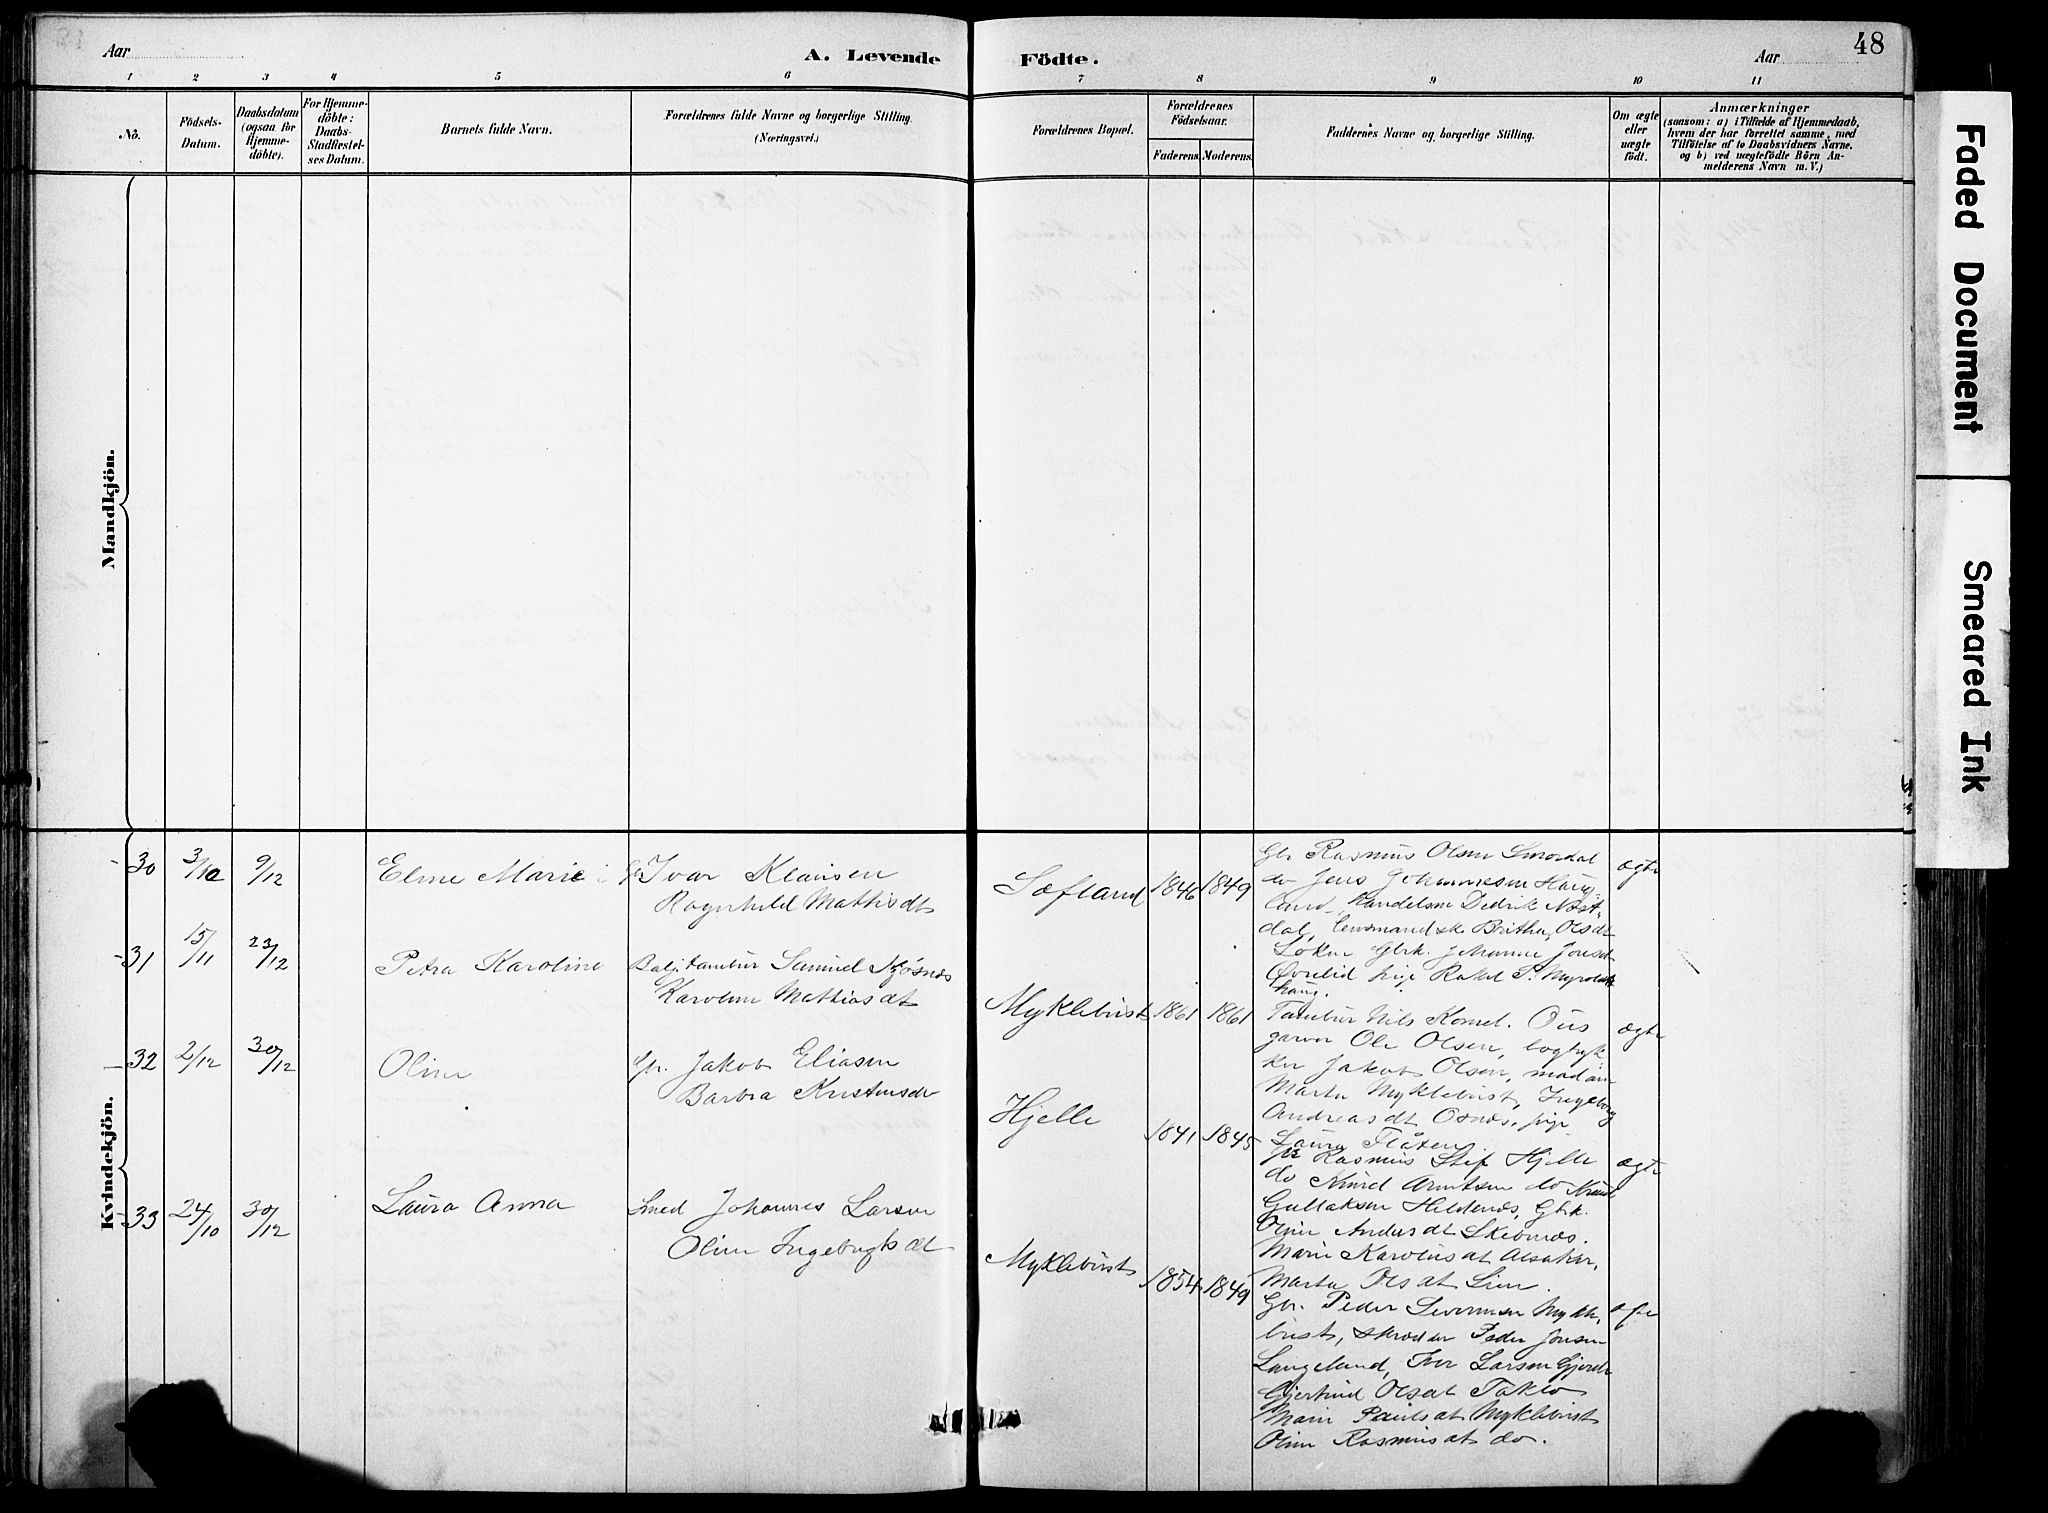 48
Aar
A. Levende
Födte.
Aar
1 2 3 4 5 6 7 8 9 10 11
No.
Födsels-
Datum.
Daabsdatum
(ogsaa for
Hjemme-
döbte).
For Hjemme-
döbte:
Daabs-
Stadfæstel-
ses Datum.
Barnets fulde Navn.
Forældrenes fulde Navne og borgerlige Stilling.
(Næringsvei.)
Forældrenes Bopæl.
Forældrenes
Födselsaar.
Faderens.
Moderens.
Faddernes Navne og borgerlige Stilling.
Om ægte
eller
uægte
födt.
Anmærkninger
(saasom: a) i Tilfælde af Hjemmedaab,
hvem der har forrettet samme, med
Tilföielse af to Daabsvidners Navne.
og b) ved uægtefödte Börn An-
melderens Navn m.V.)
Mandkjön.
Kvindekjön.
30 3/10 9/12 Eline Marie
Ivar Klausen
Ragnhild Mattisdt
Sæfland 1846 1849
Gbr Rasmus Olsen Smordal
do Jens Johannesen Haug-
land, Handelsm Didrik Nøst-
dal, lensmandsk Brithe Olsdt
Løken Gbrk. Johanne Jonsdt
Øvrelid pige Rakel P. Myrold-
haug.
ægte
31 15/11 23/12 Petra Karoline
Samuel
Karoline Mathiasdt
Myklebust 1861 1861
Tambur Nils
garver Ole Olsen, bogtryk-
ker Jakob Olsen, madam
Marta Myklebust, Ingeborg
Andreasdt Osnes, pige
Laura Flåten
ægte
32 2/12 30/12 Oline
Gbr. Jakob Eliasen
Barbra Kristensdt
Hjelle 1841 1845
Gbr Rasmus Hjelle
do Knud Arntsen do Knud
Gullaksen Hildenes, Gbrk.
Oline Andersdt Skibenes.
Marie Karolusdt Alsaker,
Marta Olsdt Lien.
ægte
33 24/10 30/12 Laura Anna
Smed Johannes Larsen
Oline Ingebrigtsdt
Myklebust 1854 1849
Gbr. Peder Severinsen Mykle-
bust, skrædder Peder Jonsen
Langeland, Iver Larsen Gjerde
Gjertrud Olsdt Taklo
Marie Paulsdt Myklebust
Oline Rasmusdt do.
Faded Document
Smeared Ink